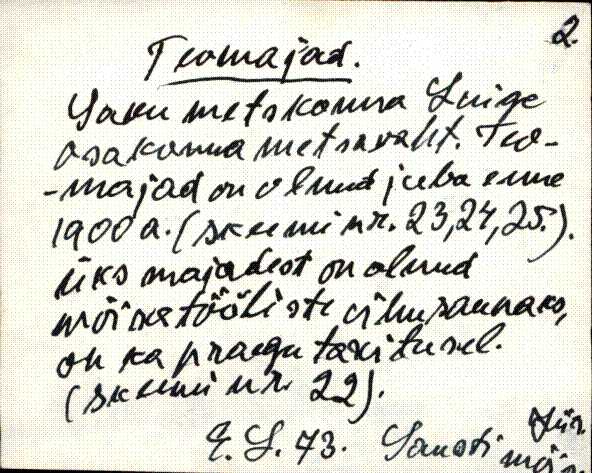 2.
Teomajad.
Saku metskonna Luige
osakonna metsavaht. Teo-
-majad on olnud juba enne
1900 a. (skeemi nr. 23,24,25.).
üks majadest on olnud
mõisatööliste ühissaunaks,
on ka praegu tarvitusel.
(skeemi nr. 22).
E. L. 73. Sanoti Jür.